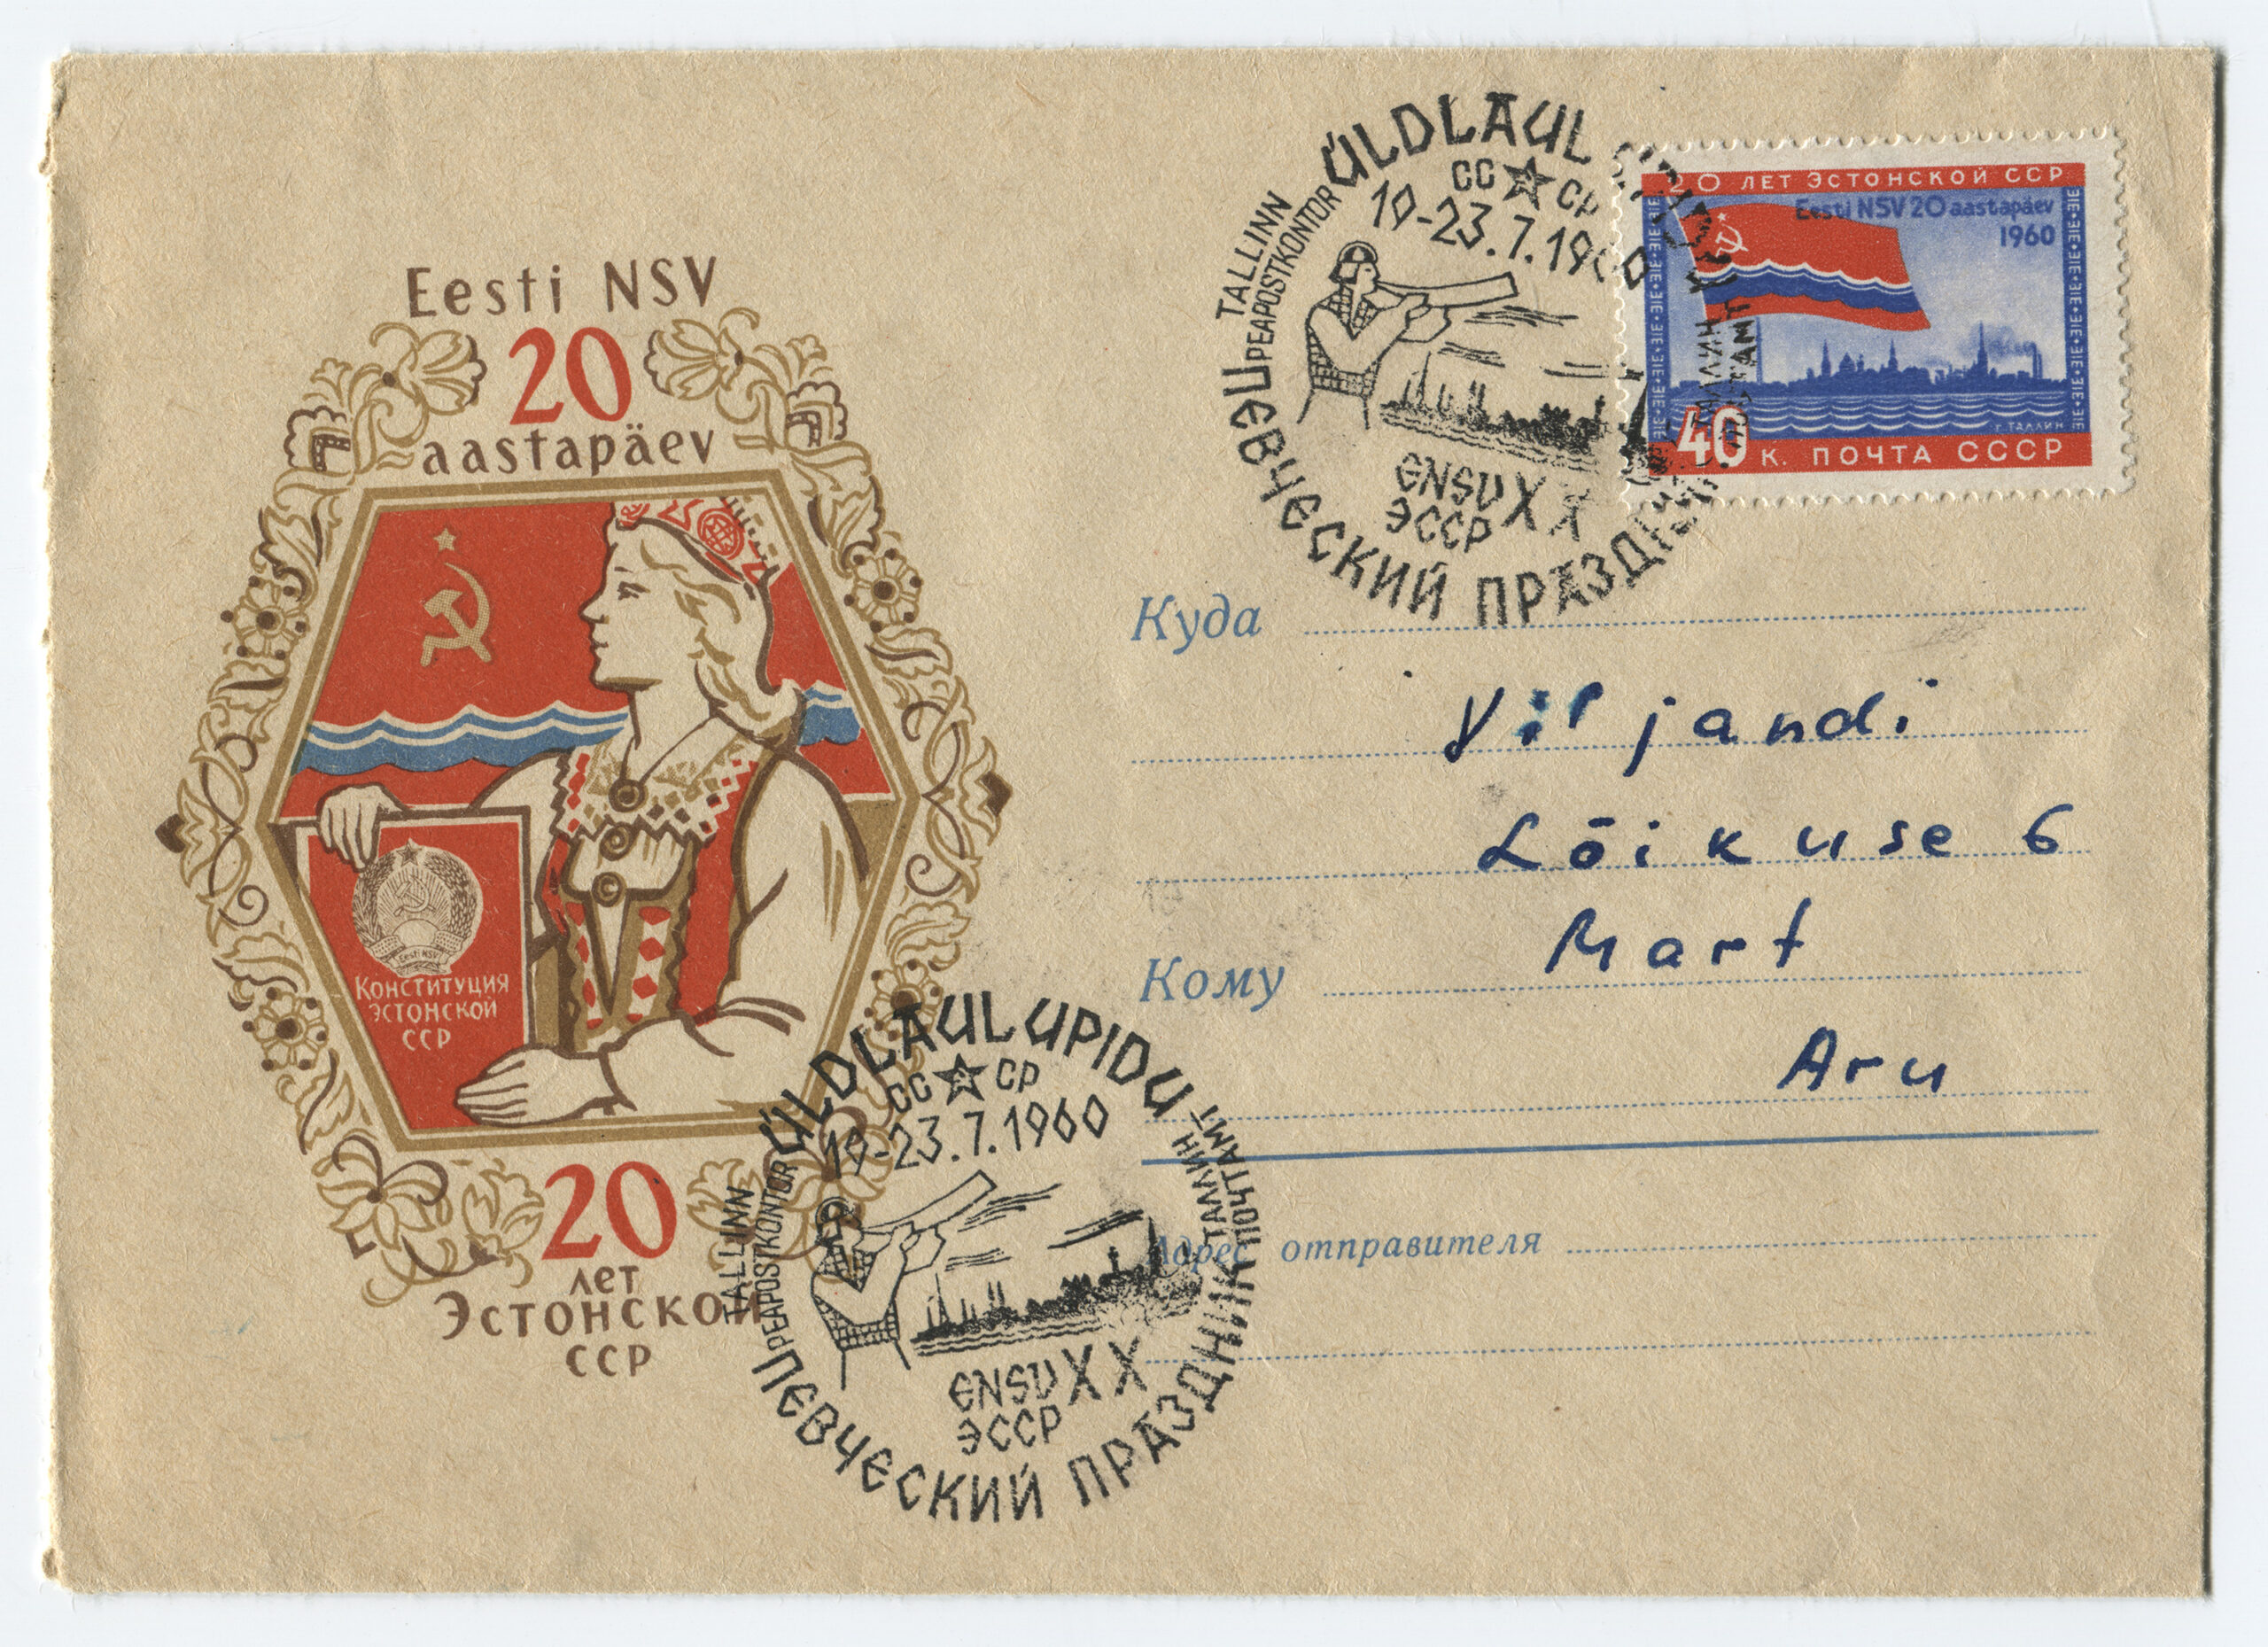 Eesti NSV
20
aastapäev
Eesti NSV
Конституция
эстонской
ССР
20
лет
Эстонской
ССР
ÜLDLAUL
TALLINN
PEAPOSTKONTOR
СС СР
19-23.7.1960
ENSV XX
ЭССР
ПЕВЧЕСКИЙ ПРАЗДНИК
ТАЛЛИН
ПОЧТАМТ
20 ЛЕТ ЭСТОНСКОЙ ССР
Eesti NSV 20 aastapäev
1960
г. ТАЛЛИН
40 к. ПОЧТА СССР
Куда
Viljandi
Lõikuse 6
Кому
Mart
Aru
Адрес отправителя
ÜLDLAULUPIDU
TALLINN
PEAPOSTKONTOR
СС СР
19-23.7.1960
ENSV XX
ЭССР
ПЕВЧЕСКИЙ ПРАЗДНИК
ТАЛЛИН
ПОЧТАМТ